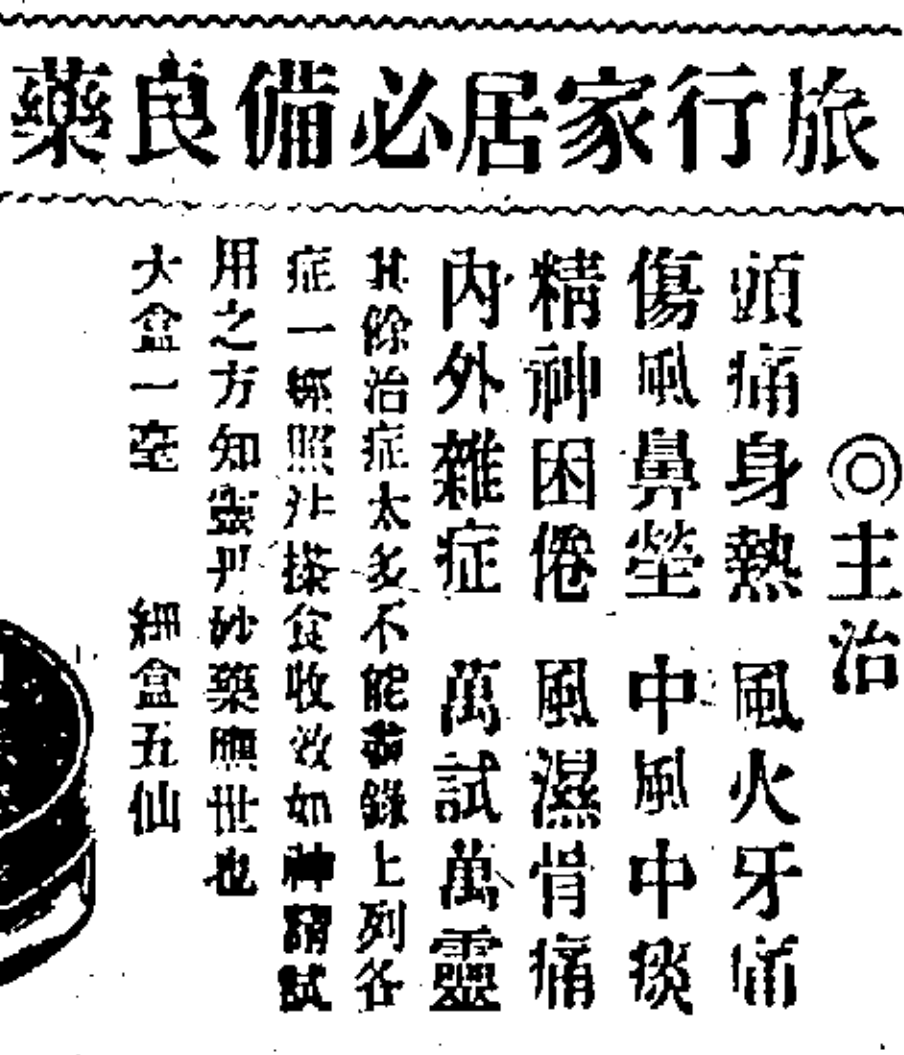 旅行家居必備良藥
◎主治
頭痛身熱 風火牙痛
傷風鼻塋 中風中痰
精神困倦 風濕骨痛
內外雜症 萬試萬靈
其餘治症太多不能盡錄上列各
症一經照法搽食收效如神請試
用之方知靈丹妙藥應世也
大盒一毫 細盒五仙